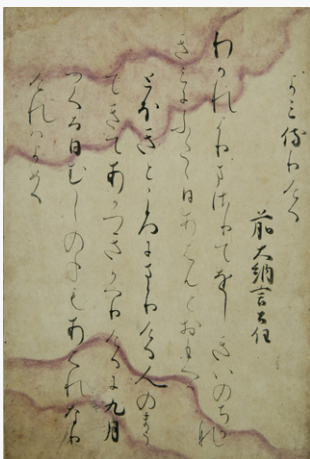 よみ侍りける
前大納言公任
わかれよりまさりてをしきいのちかな
きみにふたゝひあはんとおもへは
とほきところにまかりける人のまう
てきてあかつきかへりけるに九月
つくる日むしのねもあはれなり
けれはよめる